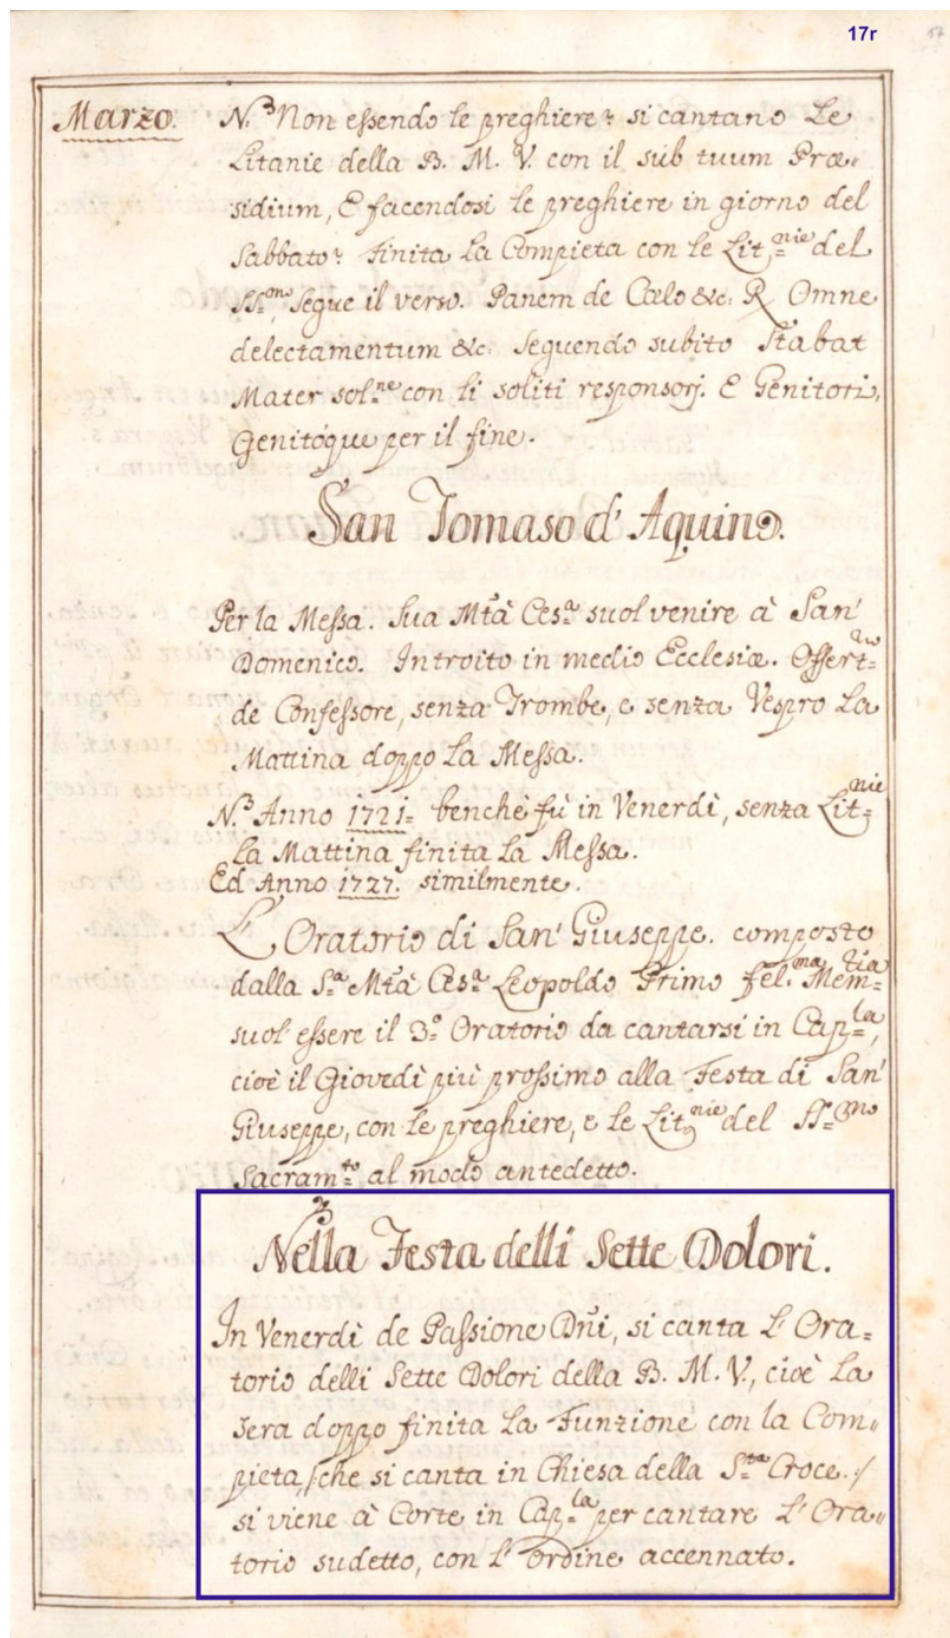 17r
Marzo.
N.B Non essendo le preghiere: si cantano Le
Litanie della B. M. V. con il sub tuum Præ„
sidium, E facendosi le preghiere in giorno del
Sabbato: finita La Compieta con le Lit.nie del
SS.mo Segue il verso. Panem de Cœlo &c: R Omne
delectamentum &c: Seguendo subito Stabat
Mater sol.ne con li soliti responsorj. E Genitori,
Genitóque per il fine.
San Tomaso d' Aquino.
Per la Messa. Sua Mtà Ces.a suol venire à San'
Domenico. Introito in medio Ecclesiæ. Offert=
de Confessore, senza Trombe, e senza Vespro La
Mattina doppo La Messa.
N.B Anno 1721= benchè fù in Venerdì, senza Lit=nie
La Mattina finita La Messa.
Ed Anno 1727. similmente.
L' Oratorio di San' Giuseppe. composto
dalla S.a Mtà Ces.a Leopoldo Primo fel.ma Mem=ria
suol' essere il 3.o Oratorio da cantarsi in Cap=la,
cioè il Giovedì più prossimo alla Festa di San'
Giuseppe, con le preghiere, e le Lit.nie del SS=mo
Sacram=to al modo antedetto.
Nella Festa delli Sette Dolori.
In Venerdì de Passione Dñi, si canta L' Ora=
torio delli Sette Dolori della B. M. V., cioè La
Sera doppo finita La Funzione con la Com„
pieta, /che si canta in Chiesa della S=ta Croce./
si viene à Corte in Cap=la per cantare L' Ora„
torio sudetto, con l' ordine accennato.